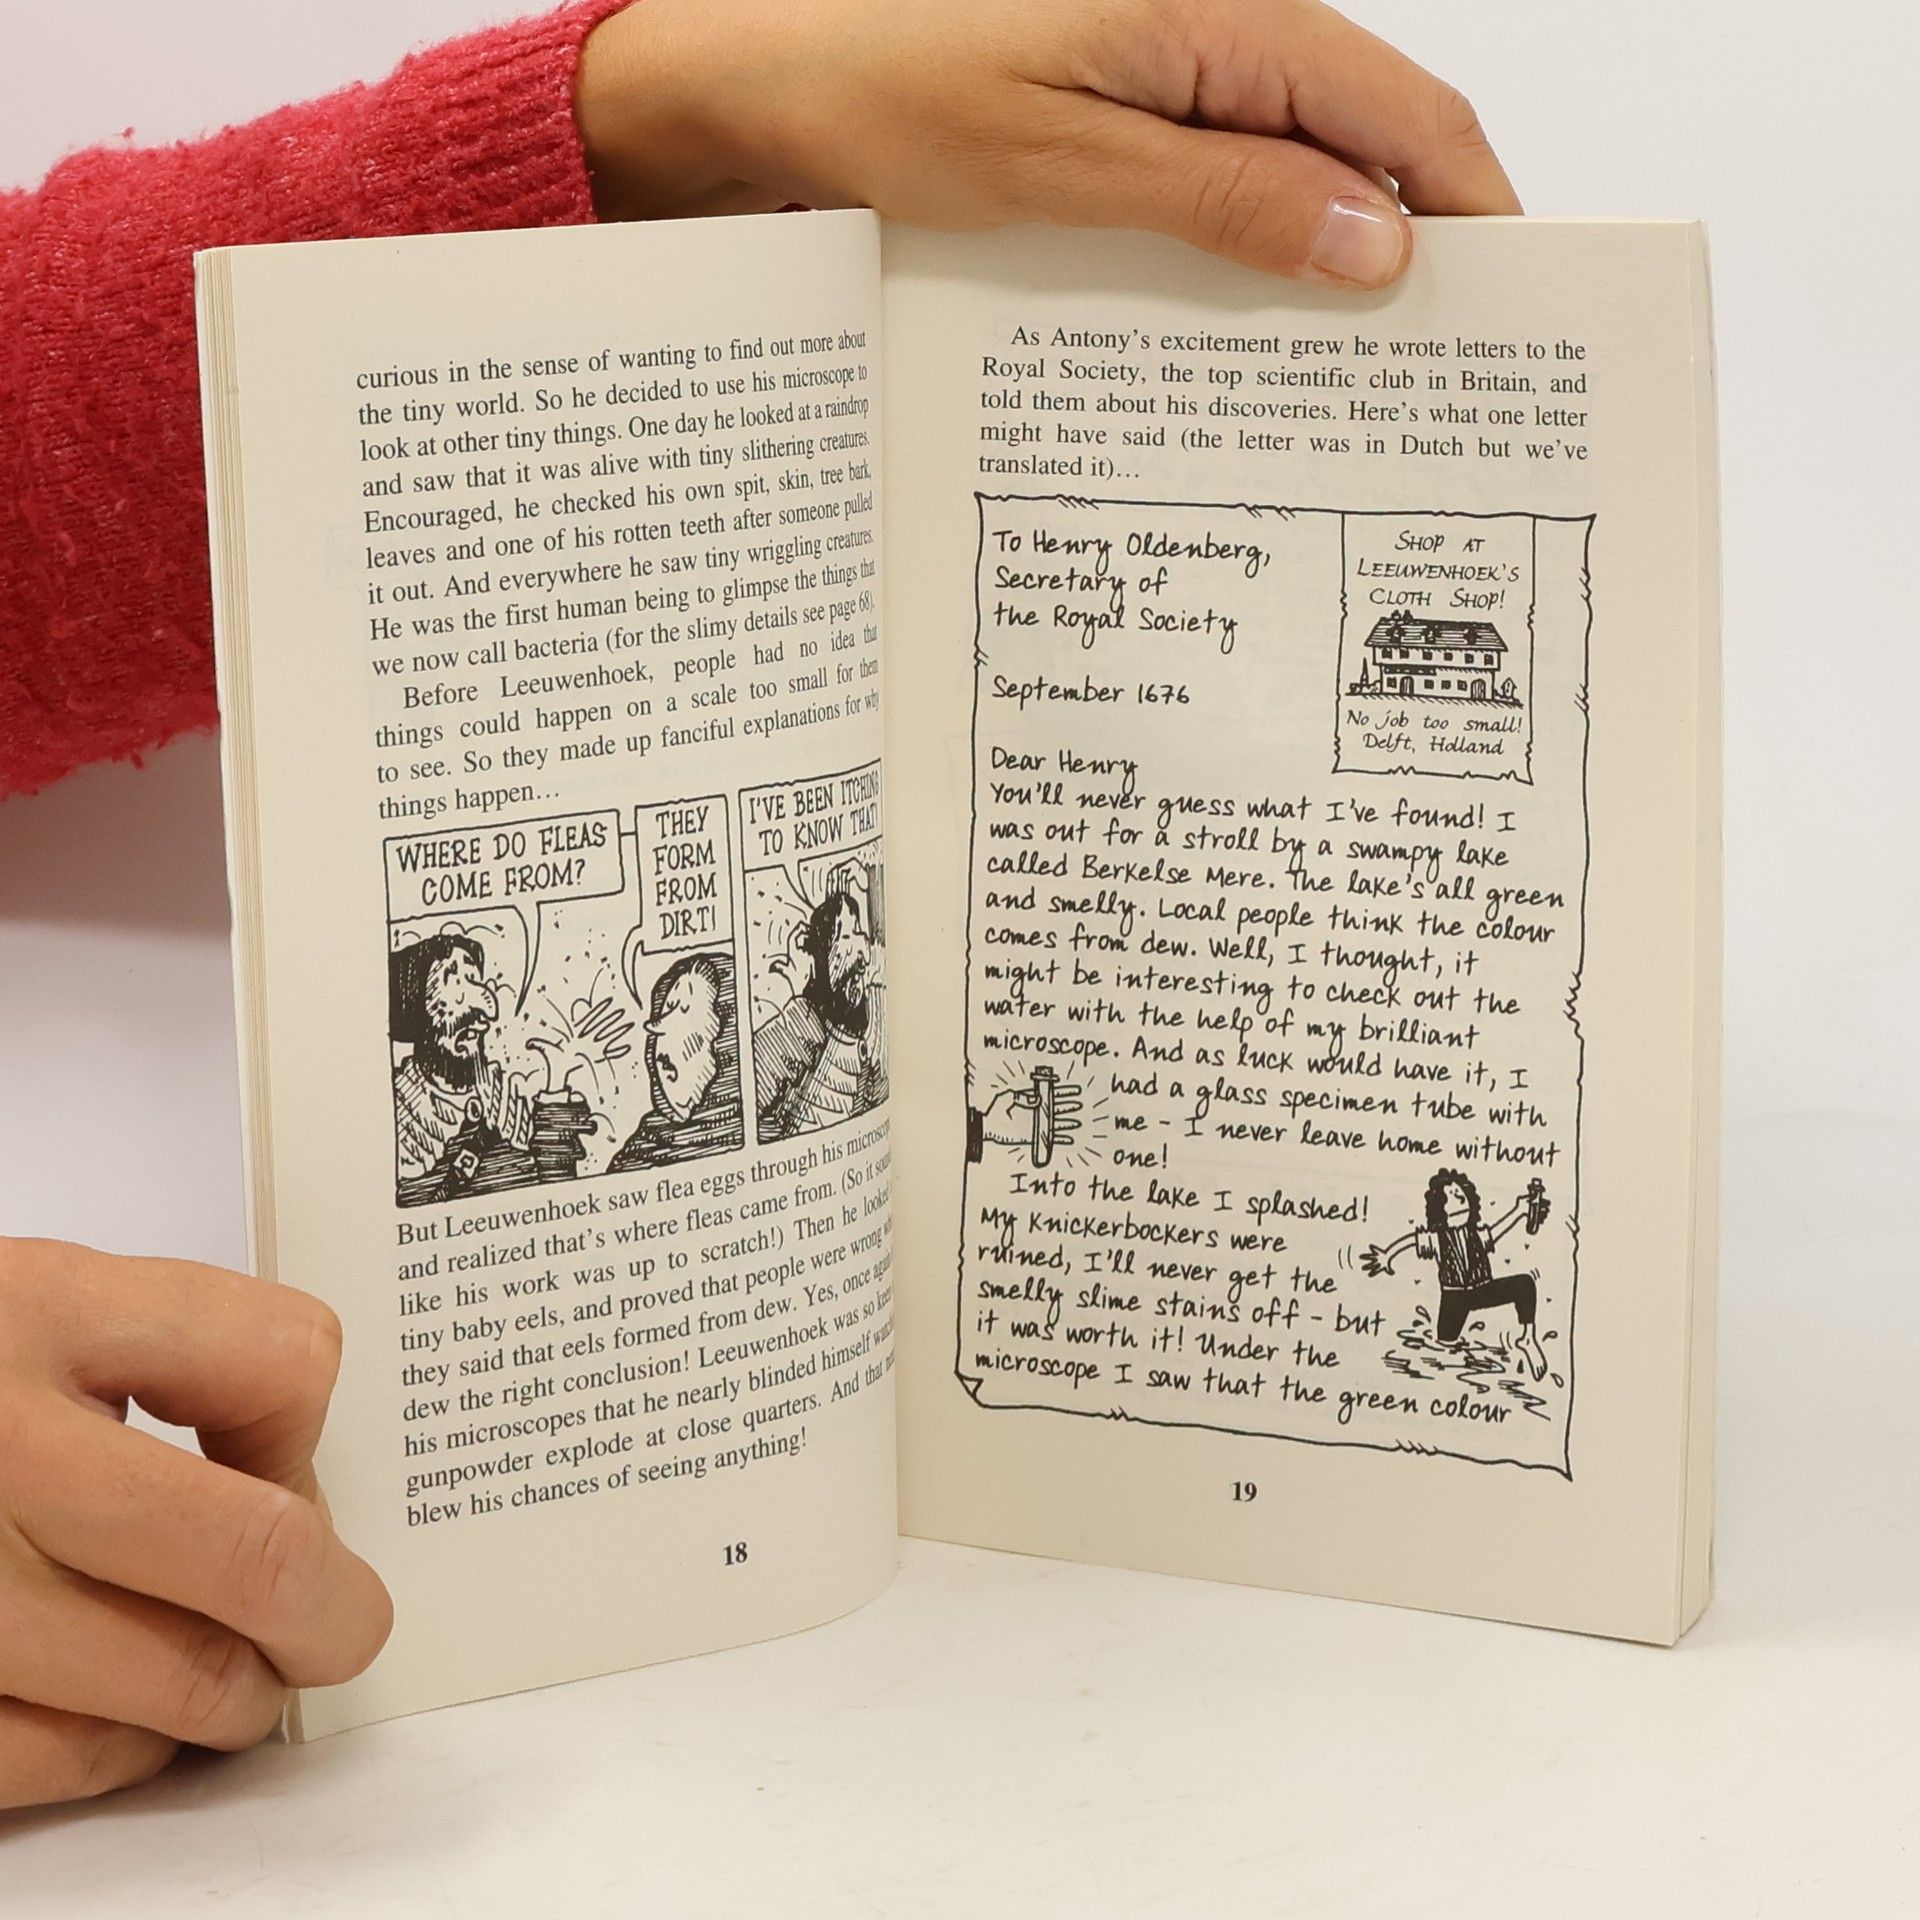 curious in the sense of wanting to find out more about
the tiny world. So he decided to use his microscope to
look at other tiny things. One day he looked at a raindrop
and saw that it was alive with tiny slithering creatures.
Encouraged, he checked his own spit, skin, tree bark,
leaves and one of his rotten teeth after someone pulled
it out. And everywhere he saw tiny wriggling creatures.
He was the first human being to glimpse the things that
we now call bacteria (for the slimy details see page 68).
Before Leeuwenhoek, people had no idea that
things could happen on a scale too small for them
to see. So they made up fanciful explanations for why
things happen...
WHERE DO FLEAS
COME FROM?
THEY
FORM
FROM
DIRT!
I'VE BEEN ITCHING
TO KNOW THAT!
But Leeuwenhoek saw flea eggs through his
and realized that's where fleas came from. (So it
like his work was up to scratch!) Then he looked
tiny baby eels, and proved that people were wrong
they said that eels formed from dew. Yes, once again
dew the right conclusion! Leeuwenhoek was so keen
his microscopes that he nearly blinded himself
gunpowder explode at close quarters. And that
blew his chances of seeing anything!
18
As Antony's excitement grew he wrote letters to the
Royal Society, the top scientific club in Britain, and
told them about his discoveries. Here's what one letter
might have said (the letter was in Dutch but we've
translated it)...
To Henry Oldenberg,
Secretary of
the Royal Society
SHOP AT
LEEUWENHOEK'S
CLOTH SHOP!
No job too small!
Delft, Holland
September 1676
Dear Henry
You'll never guess what I've found! I
was out for a stroll by a swampy lake
called Berkelse Mere. The lake's all green
and smelly. Local people think the colour
comes from dew. Well, I thought, it
might be interesting to check out the
water with the help of my brilliant
microscope. And as luck would have it, I
had a glass specimen tube with
me - I never leave home without
one!
Into the lake I splashed!
My knickerbockers were
ruined, I'll never get the
smelly slime stains off - but
it was worth it! Under the
microscope I saw that the green colour
19